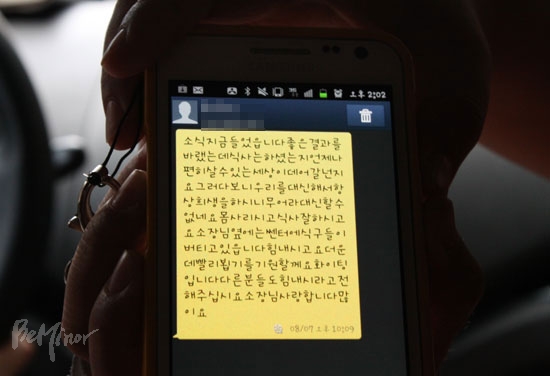 SAMSUNG
오후 2:02
소식지금들었읍니다좋은결과를
바랬는데식사는하셨는지언제나
편히살수있는세상이데어갈넌지
요그러다보니우리를대신해서항
상희생을하시니무어라대신할수
없네요몸사리시고식사잘하시고
요소장님옆에는쎈터에식구들이
버티고있읍니다힘내시고요더운
데빨리뵙기를기원할께요화이팅
입니다다른분들도힘내시라고전
해주십시요소장님사랑합니다많
이요
08/07 오후 10:09
BeMinor